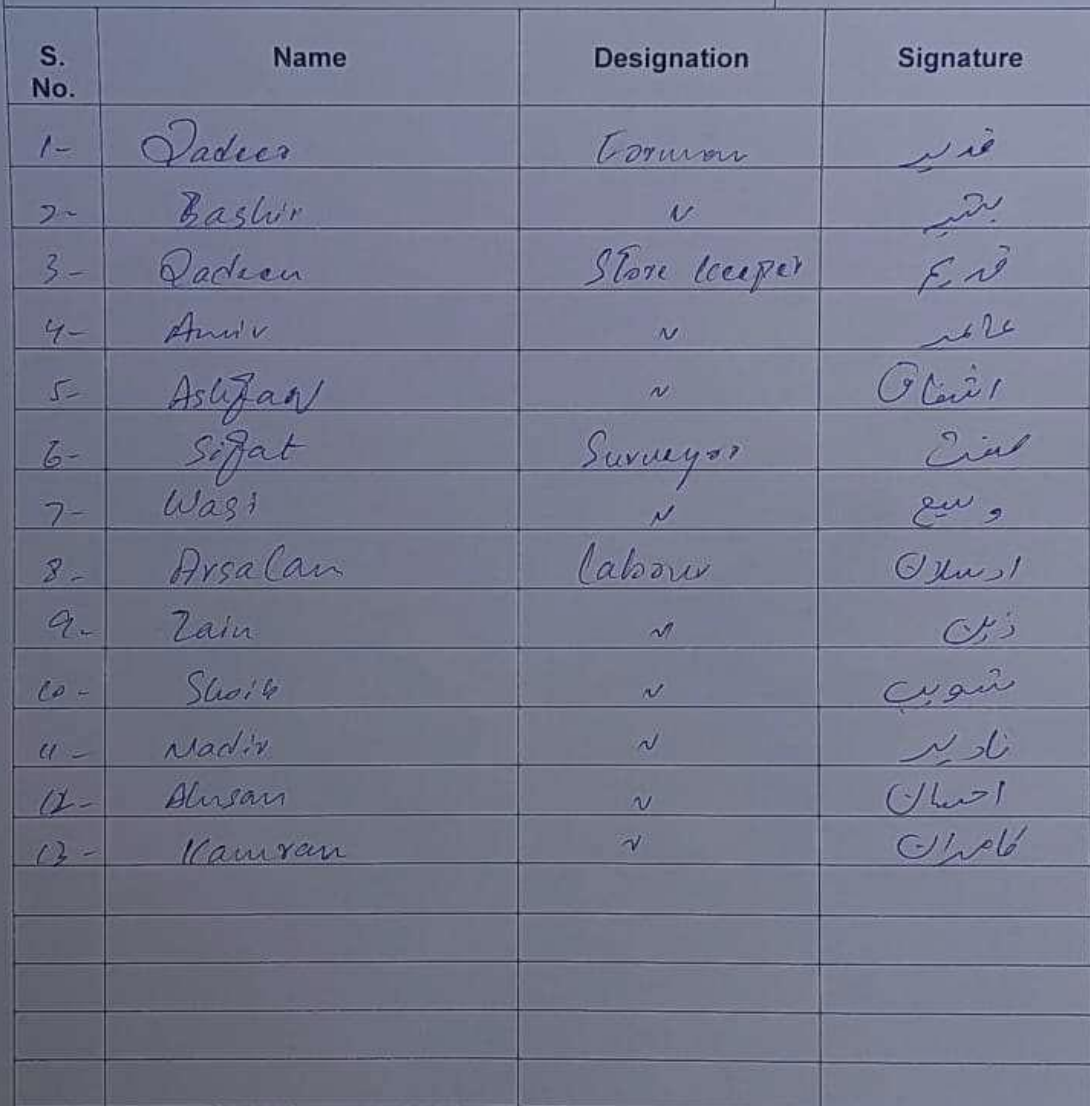 S. No. Name Designation Signature
1- Qadeer Forman قدیر
2- Bashir 〃 بشیر
3- Qadeem Store keeper قدیم
4- Amir 〃 عامر
5- Ashfaq 〃 اشفاق
6- Sifat Surveyor صفت
7- Wasi 〃 وسیع
8- Arsalan labour ارسلان
9- Zain 〃 زین
10- Shoib 〃 شویب
11- Nadir 〃 نادیر
12- Ahsan 〃 احسان
13- Kamran 〃 کامران